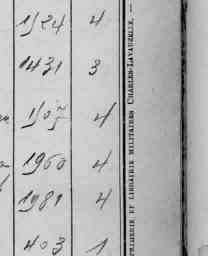 1524 4
1431 3
4
1960 4
1981 4
403 1
PRIMERIE ET LIBRAIRIE MILITAIRES CHARLES-LAVAUZELLE. —